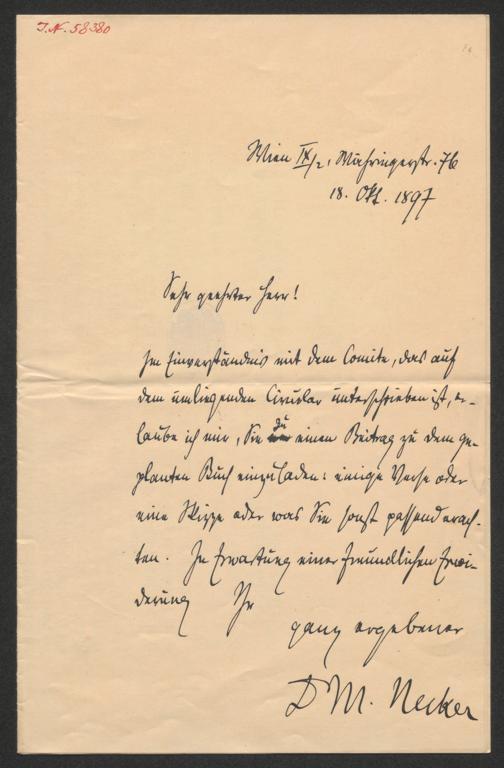 J.N. 58380
Wien IX/2, Währingerstr. 76
18. Okt. 1897
Sehr geehrter Herr!
Im Einverständnis mit dem Comite, das auf
dem umliegenden Circular unterschrieben ist, er-
laube ich mir, Sie zu einen Beitrag zu dem ge-
planten Buch einzuladen: einige Verse oder
eine Skizze oder was Sie sonst passend erach-
ten. In Erwartung einer freundlichen Erwi-
derung Ihr
ganz ergebener
D M. Necker